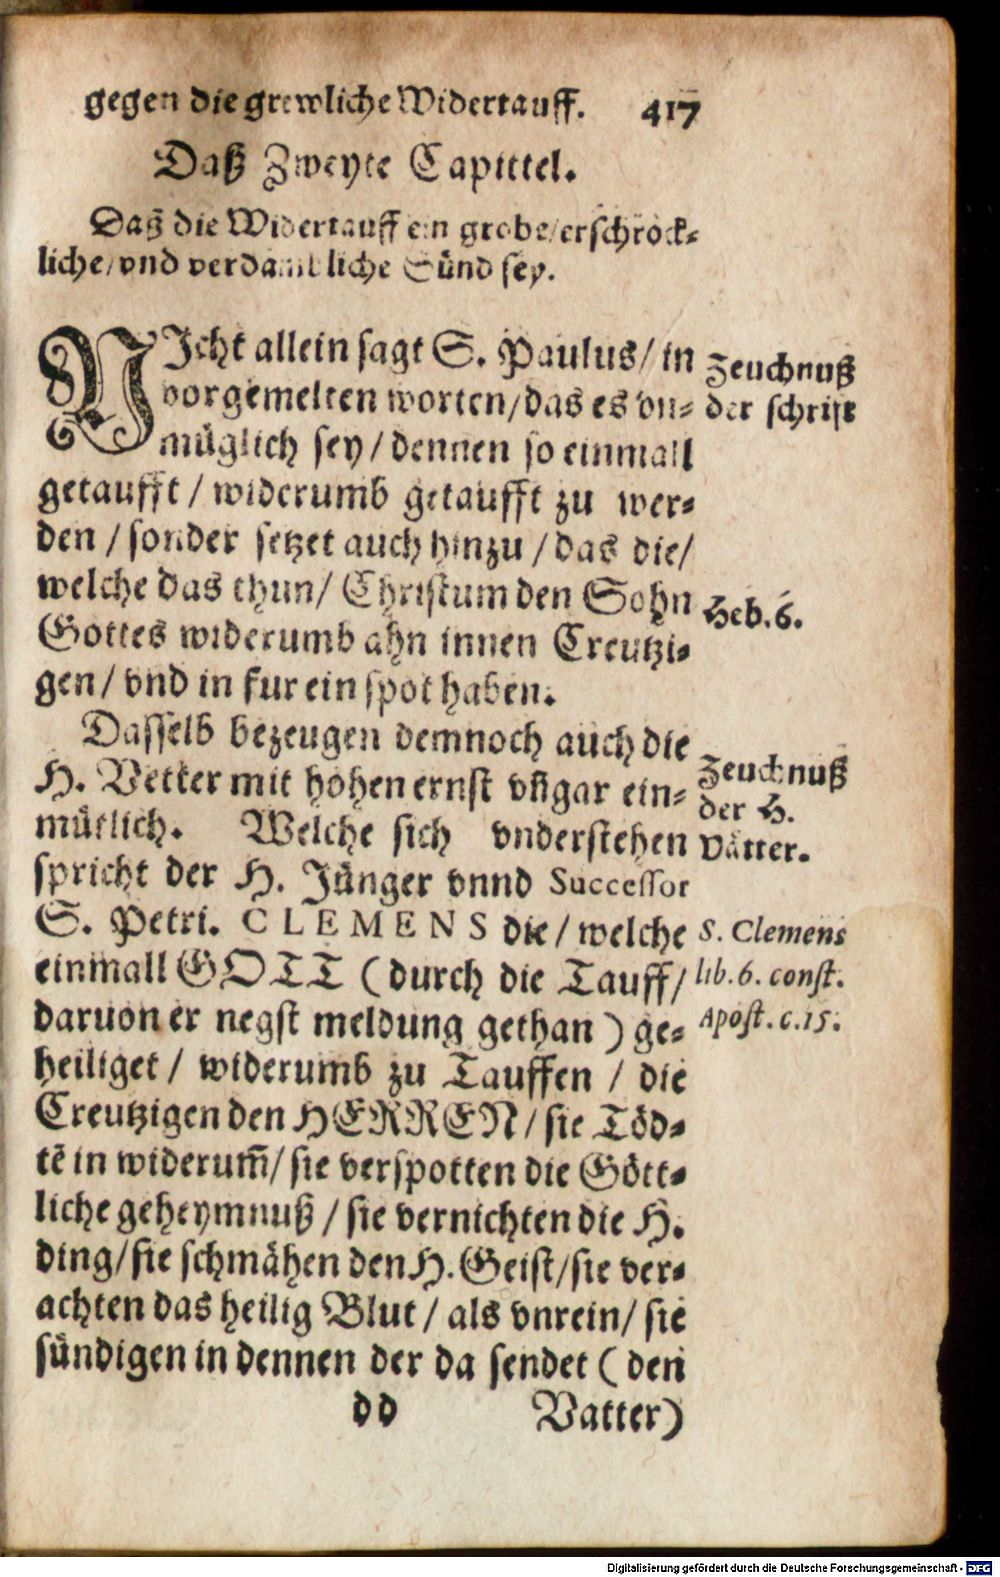 gegen die grewliche Widertauff. 417
Daß Zweyte Capittel.
Daß die Widertauff ein grobe/erschröck-
liche/vnd verdambliche Sünd sey.
NIcht allein sagt S. Paulus/ in
vorgemelten worten/das es vn-
müglich sey/ dennen so einmall
getaufft/ widerumb getaufft zu wer-
den/sonder setzet auch hinzu/das die/
welche das thun/ Christum den Sohn
Gottes widerumb ahn innen Creutzi-
gen/ vnd in fur ein spot haben.
Zeuchnuß
der schrift
Heb. 6.
Dasselb bezeugen demnoch auch die
H. Vetter mit hohen ernst vñ gar ein-
mütlich. Welche sich vnderstehen
spricht der H. Jünger vnnd Successor
S. Petri. CLEMENS die/ welche
einmall GOTT (durch die Tauff/
daruon er negst meldung gethan) ge-
heiliget/ widerumb zu Tauffen/ die
Creutzigen den HERREN/ sie Töd-
tẽ in widerum̃/ sie verspotten die Gött-
liche geheymnuß/ sie vernichten die H.
ding/sie schmähen den H. Geist/sie ver-
achten das heilig Blut/ als vnrein/ sie
sündigen in dennen der da sendet (den
Zeuchnuß
der H.
Vätter.
S. Clemens
lib. 6. const.
Apost. c. 15.
dd Vatter)
Digitalisierung gefördert durch die Deutsche Forschungsgemeinschaft - DFG